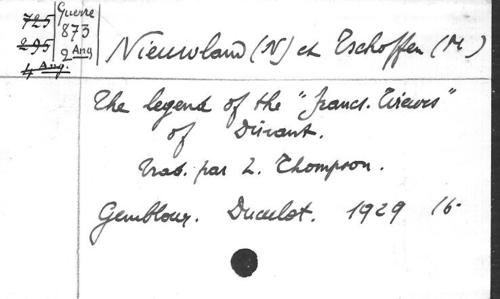 725 Guerre
295 873
4 Ang. 2 Ang
Nieuwland (N) et Tschoffen (M.)
The legend of the "francs-tireurs"
of Dinant.
Trad. par L. Thompson.
Gembloux. Duculot. 1929 16-